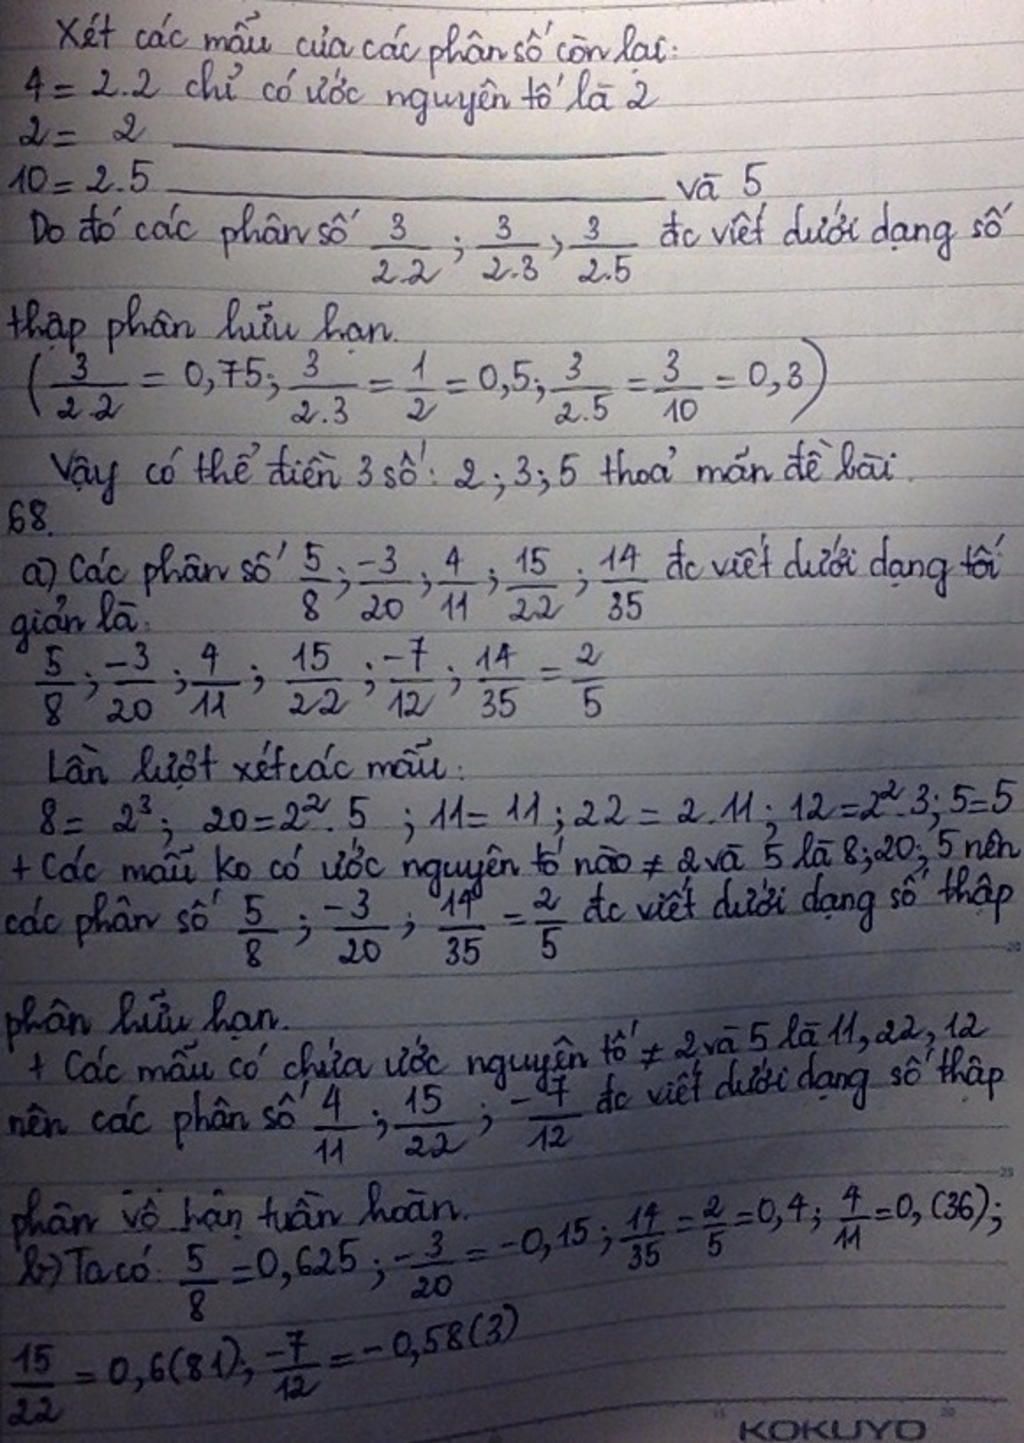 Xét các mẫu của các phân số còn lại:
4 = 2.2 chỉ có ước nguyên tố là 2
2 = 2 ____________
10 = 2.5 ____________ và 5
Do đó các phân số 3/2.2 ; 3/2.3 ; 3/2.5 đc viết dưới dạng số
thập phân hữu hạn.
(3/2.2 = 0,75; 3/2.3 = 1/2 = 0,5; 3/2.5 = 3/10 = 0,3)
Vậy có thể điền 3 số: 2 ; 3 ; 5 thoả mãn đề bài.
68.
a) Các phân số 5/8 ; -3/20 ; 4/11 ; 15/22 ; 14/35 đc viết dưới dạng tối
giản là:
5/8 ; -3/20 ; 4/11 ; 15/22 ; -7/12 ; 14/35 = 2/5
Lần lượt xét các mẫu:
8 = 2³ ; 20 = 2².5 ; 11 = 11 ; 22 = 2.11 ; 12 = 2².3 ; 5 = 5
+ Các mẫu ko có ước nguyên tố nào ≠ 2 và 5 là 8; 20; 5 nên
các phân số 5/8 ; -3/20 ; 14/35 = 2/5 đc viết dưới dạng số thập
phân hữu hạn.
+ Các mẫu có chứa ước nguyên tố ≠ 2 và 5 là 11, 22, 12
nên các phân số 4/11 ; 15/22 ; -7/12 đc viết dưới dạng số thập
phân vô hạn tuần hoàn.
b) Ta có: 5/8 = 0,625 ; -3/20 = -0,15 ; 14/35 = 2/5 = 0,4 ; 4/11 = 0,(36);
15/22 = 0,6(81); -7/12 = -0,58(3)
KOKUYO